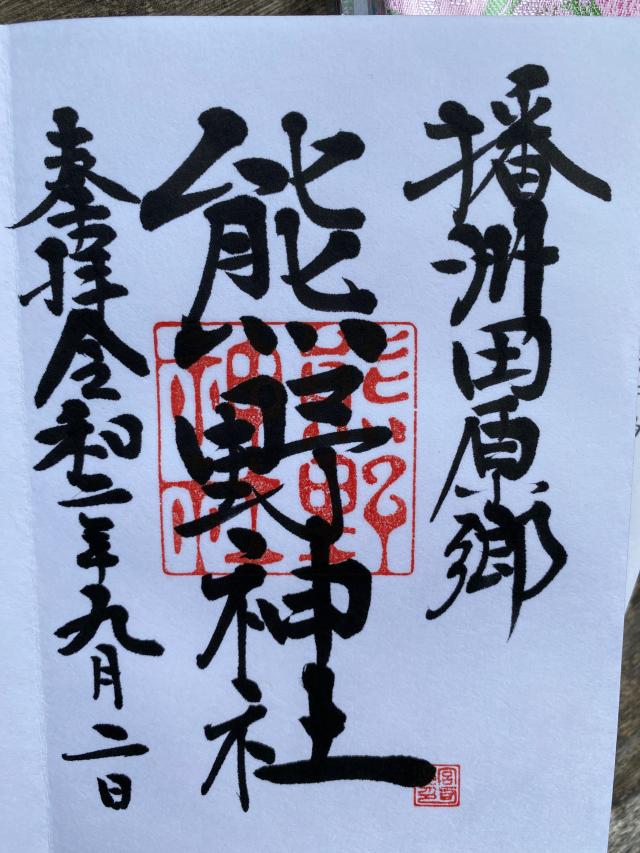 播州田原郷
熊野神社
奉拝令和二年九月二日
熊野
神社